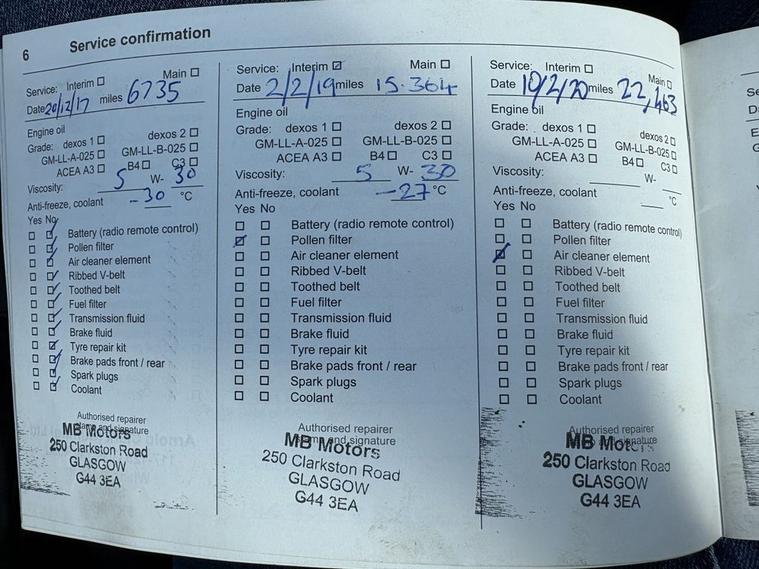 6 Service confirmation
Service: Interim ☐ Main ☐
Date 20/12/17 miles 6735
Engine oil
Grade: dexos 1 ☐ dexos 2 ☐
GM-LL-A-025 ☐ GM-LL-B-025 ☐
ACEA A3 ☐ B4 ☐ C3 ☐
Viscosity: 5 W- 30
Anti-freeze, coolant -30 °C
Yes No
Battery (radio remote control)
Pollen filter
Air cleaner element
Ribbed V-belt
Toothed belt
Fuel filter
Transmission fluid
Brake fluid
Tyre repair kit
Brake pads front / rear
Spark plugs
Coolant
Authorised repairer
and signature
MB Motors
250 Clarkston Road
GLASGOW
G44 3EA
Service: Interim ☑ Main ☐
Date 2/2/19 miles 15.364
Engine oil
Grade: dexos 1 ☐ dexos 2 ☐
GM-LL-A-025 ☐ GM-LL-B-025 ☐
ACEA A3 ☐ B4 ☐ C3 ☐
Viscosity: 5 W- 30
Anti-freeze, coolant -27 °C
Yes No
Battery (radio remote control)
Pollen filter
Air cleaner element
Ribbed V-belt
Toothed belt
Fuel filter
Transmission fluid
Brake fluid
Tyre repair kit
Brake pads front / rear
Spark plugs
Coolant
Authorised repairer
and signature
MB Motors
250 Clarkston Road
GLASGOW
G44 3EA
Service: Interim ☐ Main ☐
Date 10/2/20 miles 22,463
Engine oil
Grade: dexos 1 ☐ dexos 2 ☐
GM-LL-A-025 ☐ GM-LL-B-025 ☐
ACEA A3 ☐ B4 ☐ C3 ☐
Viscosity: W-
Anti-freeze, coolant °C
Yes No
Battery (radio remote control)
Pollen filter
Air cleaner element
Ribbed V-belt
Toothed belt
Fuel filter
Transmission fluid
Brake fluid
Tyre repair kit
Brake pads front / rear
Spark plugs
Coolant
Authorised repairer
signature
MB
250 Clarkston Road
GLASGOW
G44 3EA